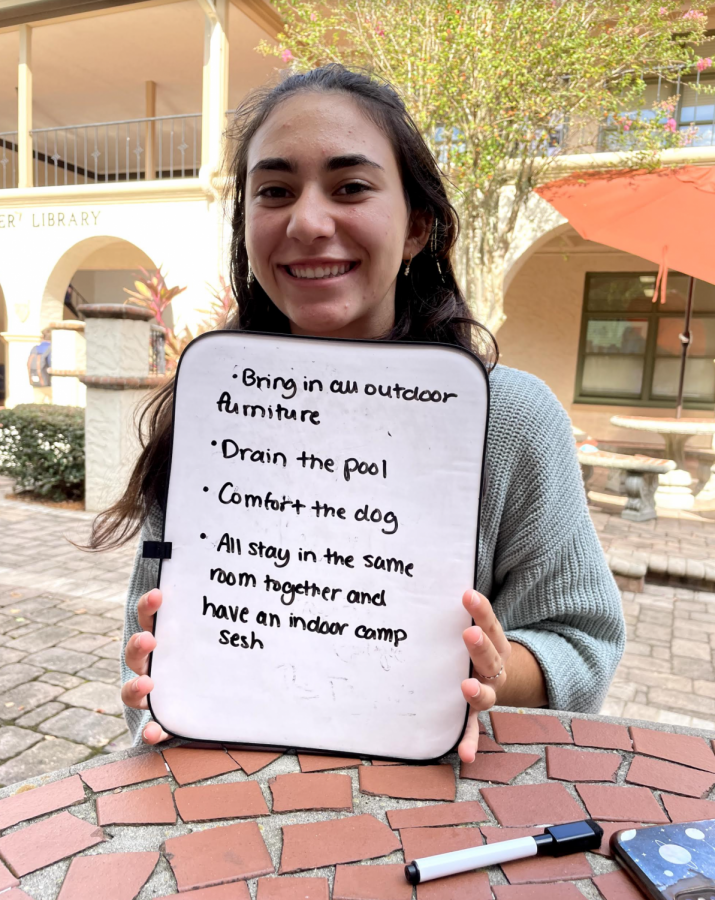 ER LIBRARY
• Bring in all outdoor
furniture
• Drain the pool
• Comfort the dog
• All stay in the same
room together and
have an indoor camp
sesh